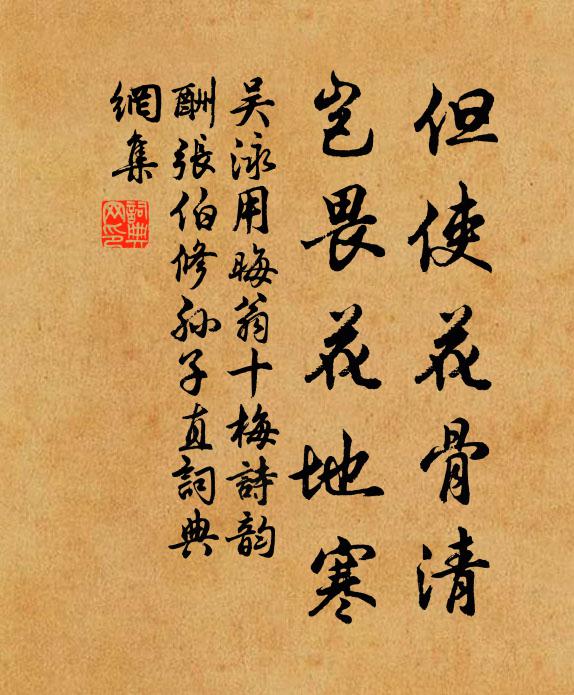 但使花骨清
岂畏花地寒
吴泳用晦翁十梅詩韵
酬張伯修孙子直詞典
網集
詞典网印